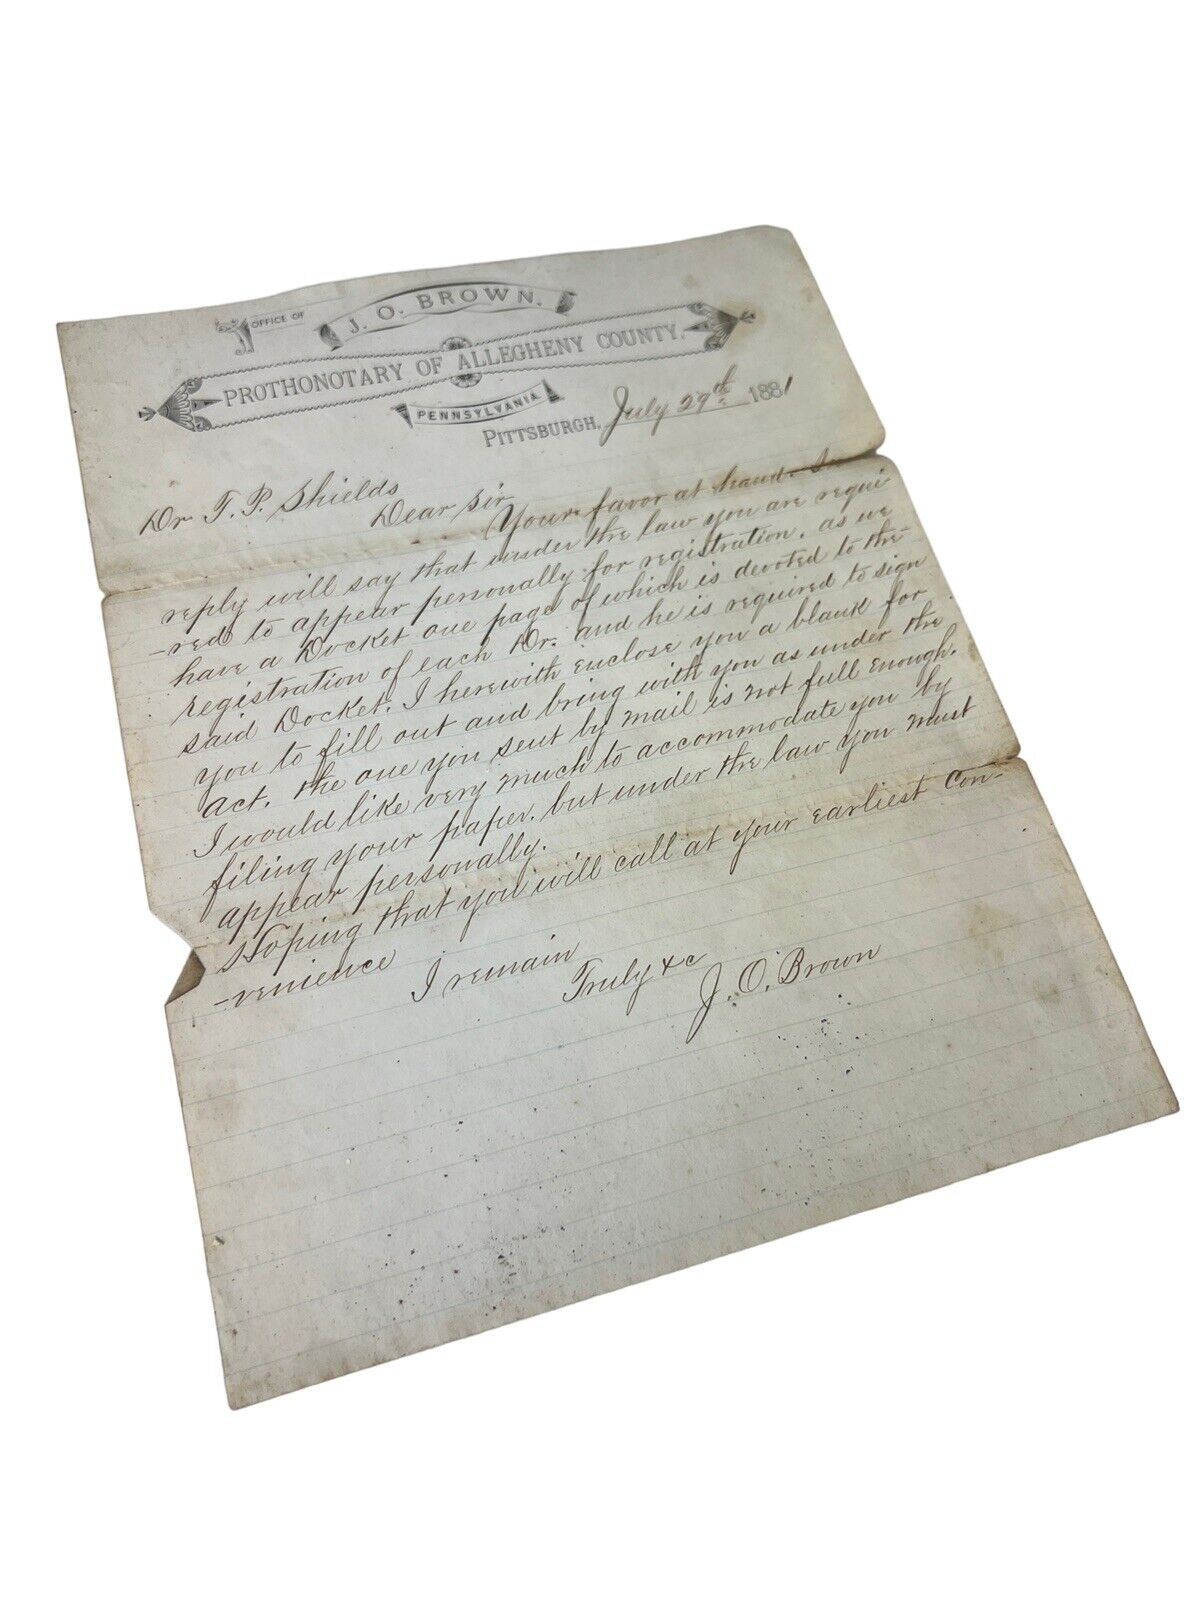 OFFICE OF
J. O. BROWN.
PROTHONOTARY OF ALLEGHENY COUNTY,
PENNSYLVANIA
PITTSBURGH, July 29th 1881
Dr T. P. Shields
Dear Sir
Your favor at hand. In
reply will say that under the law you are requi
-red to appear personally for registration. as we
have a Docket one page of which is devoted to the
registration of each Dr. and he is required to sign
said Docket. I herewith enclose you a blank for
you to fill out and bring with you as under the
act. the one you sent by mail is not full enough.
I would like very much to accommodate you by
filing your paper. but under the law you must
appear personally.
Hoping that you will call at your earliest con-
-venience
I remain
Truly &c
J. O. Brown